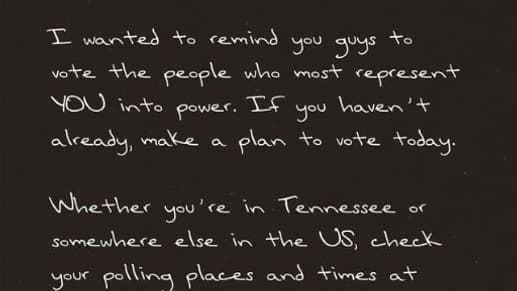 I wanted to remind you guys to
vote the people who most represent
YOU into power. If you haven't
already, make a plan to vote today.
Whether you're in Tennessee or
somewhere else in the US, check
your polling places and times at